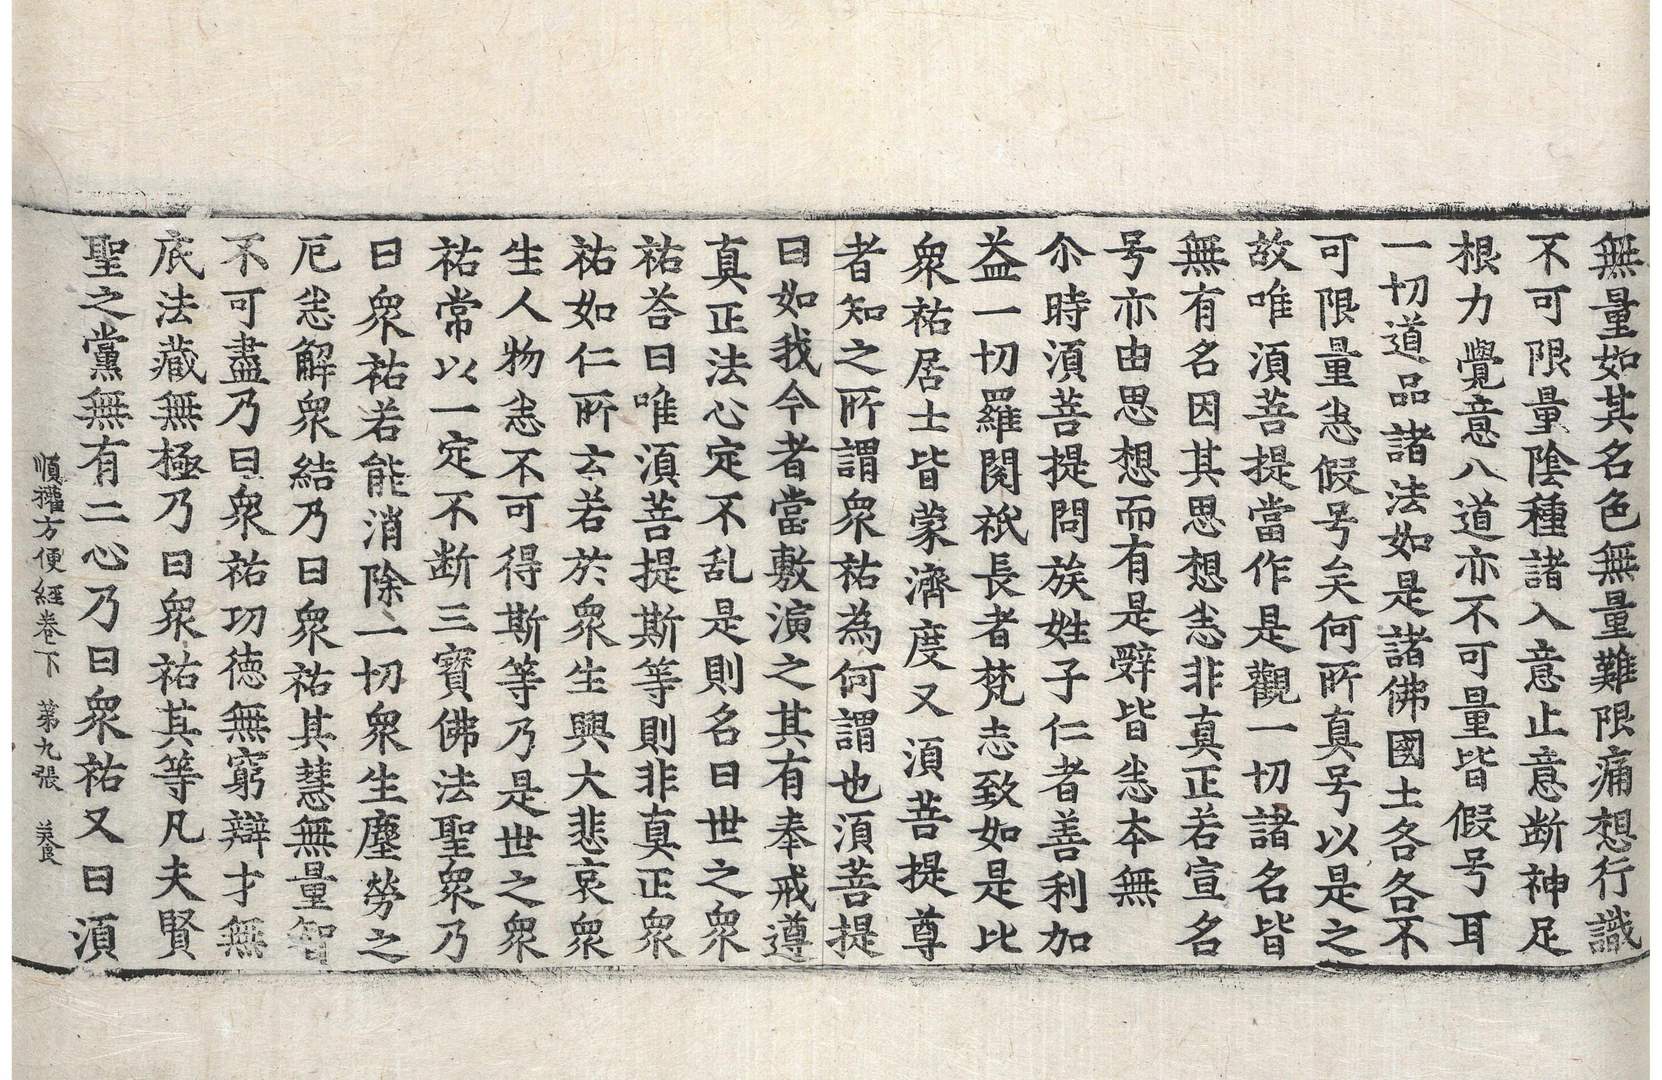 無量如其名色無量難限痛想行識
不可限量陰種諸入意止意断神足
根力覺意八道亦不可量皆假号耳
一切道品諸法如是諸佛國土各各不
可限量悉假号矣何所真号以是之
故唯湏菩提當作是觀一切諸名皆
無有名因其思想悉非真正若宣名
号亦由思想而有是辝皆悉本無
尒時湏菩提問族姓子仁者善利加
益一切羅閱祇長者梵志致如是比
衆祐居士皆蒙濟度又湏菩提尊
者知之所謂衆祐為何謂也湏菩提
曰如我今者當敷演之其有奉戒遵
真正法心定不乱是則名曰世之衆
祐荅曰唯湏菩提斯等則非真正衆
祐如仁所玄若於衆生興大悲哀衆
生人物悉不可得斯等乃是世之衆
祐常以一定不断三寶佛法聖衆乃
曰衆祐若能消除一切衆生塵勞之
厄悉解衆結乃曰衆祐其慧無量智
不可盡乃曰衆祐功德無窮辯才無
底法藏無極乃曰衆祐其等凡夫賢
聖之黨無有二心乃曰衆祐又曰湏
順權方便經卷下 第九張 養